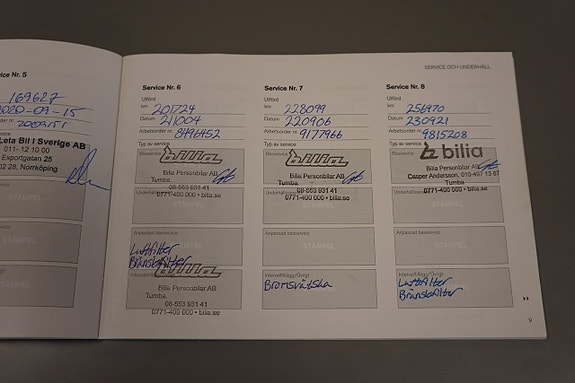 SERVICE OCH UNDERHÅLL
Service Nr. 5
169627
2020-09-15
Leta Bil i Sverige AB
011- 12 10 00
Exportgatan 25
02 28, Norrköping
STÄMPEL
STÄMPEL
Service Nr. 6
Utförd
km 201724
Datum 211004
Arbetsorder nr 8496452
Typ av service
bilia
Bilia Personbilar AB
Tumba
08-553 931 41
0771-400 000 • bilia.se
STÄMPEL
Anpassad basservice
Luftfilter
Bränslefilter
bilia
Bilia Personbilar AB
Tumba
08-553 931 41
0771-400 000 • bilia.se
Service Nr. 7
Utförd
km 228099
Datum 220906
Arbetsorder nr 9177966
Typ av service
Basservice
bilia
Bilia Personbilar AB
Tumba
08-553 931 41
0771-400 000 • bilia.se
STÄMPEL
Anpassad basservice
STÄMPEL
Intervall/tillägg/Övrigt
Bromsvätska
Service Nr. 8
Utförd
km 256970
Datum 230921
Arbetsorder nr 9815208
Typ av service
Basservice
bilia
Bilia Personbilar AB
Casper Andersson, 010-497 13 87
Tumba
0771-400 000 • bilia.se
STÄMPEL
Anpassad basservice
STÄMPEL
Intervall/tillägg/Övrigt
Luftfilter
Bränslefilter
9